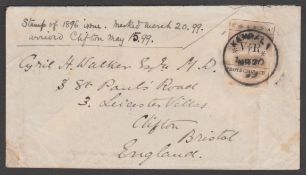 Stamp of 1896 issue. Marked march 20.99.
arrived Clifton May 15.99.
Cyril H. Walker Esqre M.D.
3 St Pauls Road
3. Leicester Villas
Clifton
Bristol
England.
V.R.
MR 20